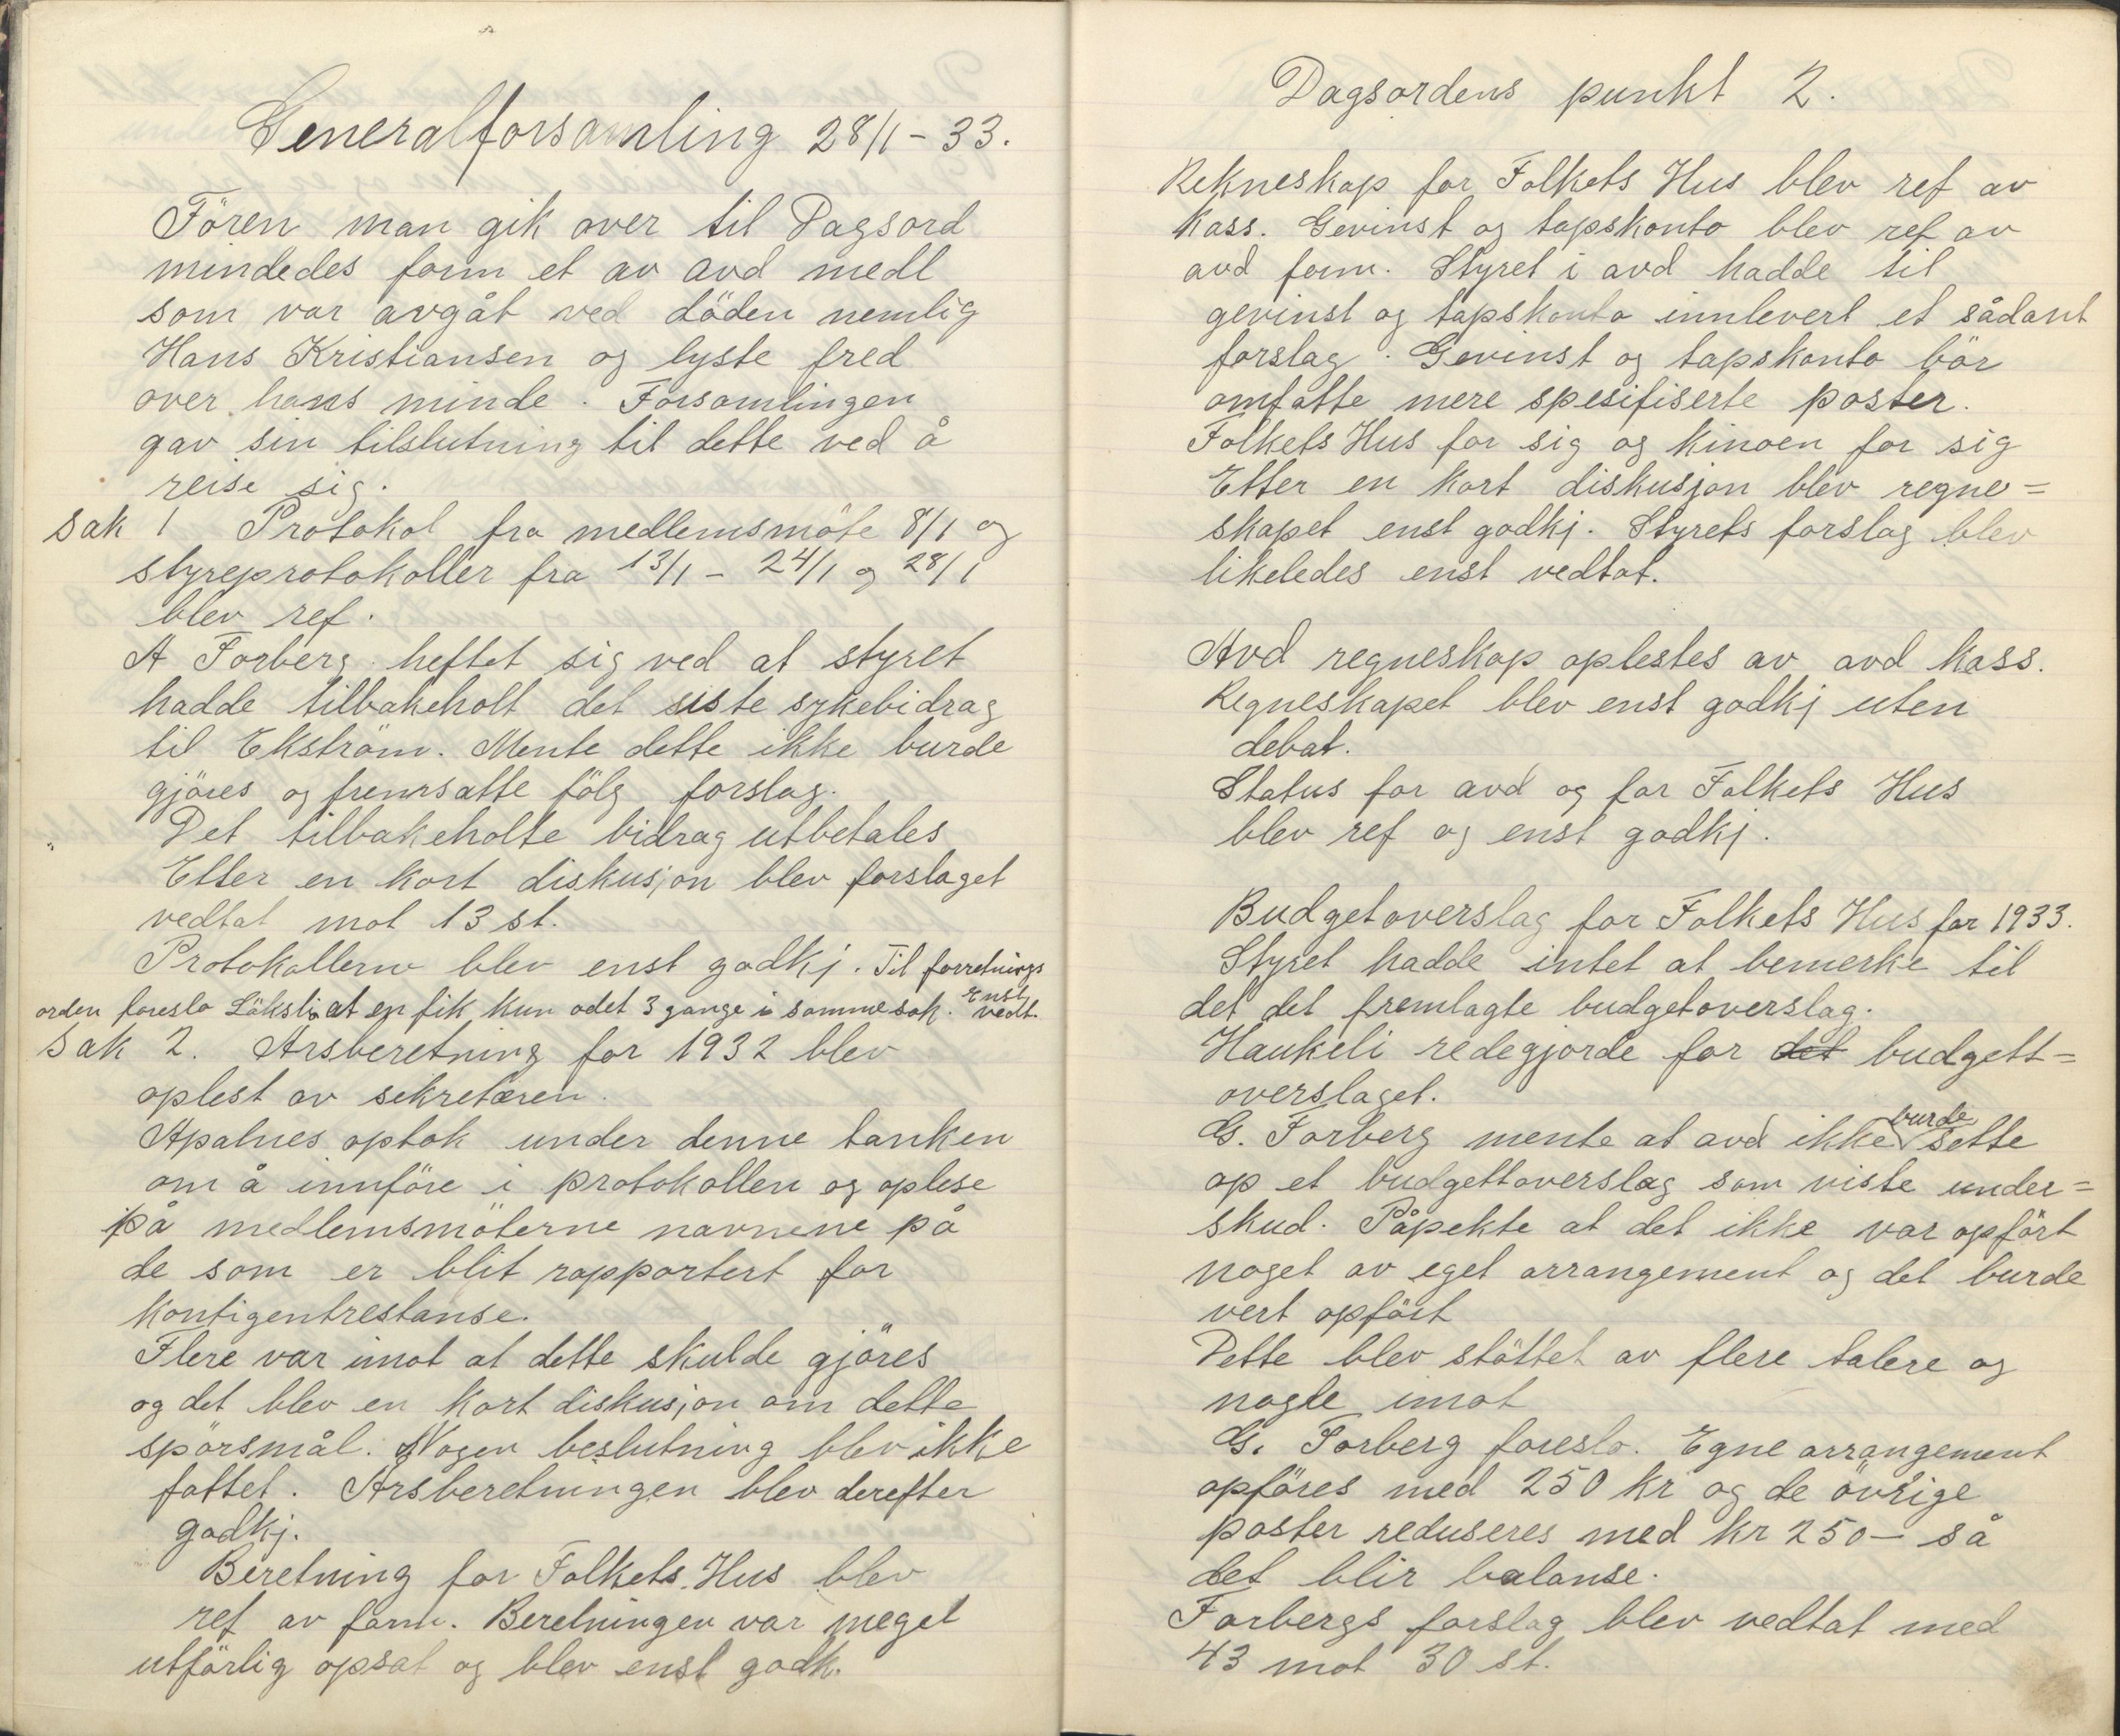 Generalforsamling 28/1-33.
Fören man gik over til Dagsord
mindedes form et av avd medl
som var avgåt ved döden nemlig
Hans Kristiansen og lyste fred
over hans minde. Forsamlingen
gav sin tilslutning til dette ved å
reise sig.
Sak 1 Protokol fra medlemsmöte 8/1 og
styreprotokoller fra 13/1 - 24/1 og 28/1
blev ref.
A Forberg heftet sig ved at styret
hadde tilbakeholt det siste sykebidrag
til Ekström. Mente dette ikke burde
gjöres og fremsatte fölg forslag.
Det tilbakeholte bidrag utbetales
Etter en kort diskusjon blev forslaget
vedtat mot 13 st.
Protokollerne blev enst godkj. Til forretnings
orden foreslo Löksli at en fik kun odet 3 gange i samme sak. Enst vedt.
Sak 2. Årsberetning for 1932 blev
oplest av sekretæren.
Apalnes optok under denne tanken
om å innföre i protokollen og oplese
på medlemsmöterne navnene på
de som er blit rapportert for
kontigentrestanse.
Flere var imot at dette skulde gjöres
og det blev en kort diskusjon om dette
spörsmål. Nogen beslutning blev ikke
fattet. Årsberetningen blev derefter
godkj.
Beretning for Folkets Hus blev
ref av form. Beretningen var meget
utförlig opsat og blev enst godk.
Dagsordens punkt 2.
Rekneskap for Folkets Hus blev ref av
kass. Gevinst og tapskonto blev ref av
avd form. Styret i avd hadde til
gevinst og tapskonto innlevert et sådant
forslag. Gevinst og tapskonto bör
omfatte mere spesifiserte poster.
Folkets Hus for sig og kinoen for sig
Etter en kort diskusjon blev regne=
skapet enst godkj. Styrets forslag blev
likeledes enst vedtat.
Avd regneskap oplestes av avd kass.
Regneskapet blev enst godkj uten
debat.
Status for avd og for Folkets Hus
blev ref og enst godkj.
Budgetoverslag for Folkets Hus for 1933.
Styret hadde intet at bemerke til
det det fremlagte budgetoverslag.
Haukeli redegjorde for det budgett=
overslaget.
G. Forberg mente at avd ikke burde sette
op et budgettoverslag som viste under=
skud. Påpekte at det ikke var opfört
noget av eget arrangement og det burde
vert opfört
Dette blev stöttet av flere talere og
nogle imot
G. Forberg foreslo. Egne arrangement
opföres med 250 kr og de övrige
poster reduseres med kr 250- så
det blir balanse.
Forbergs forslag blev vedtat med
43 mot 30 st.